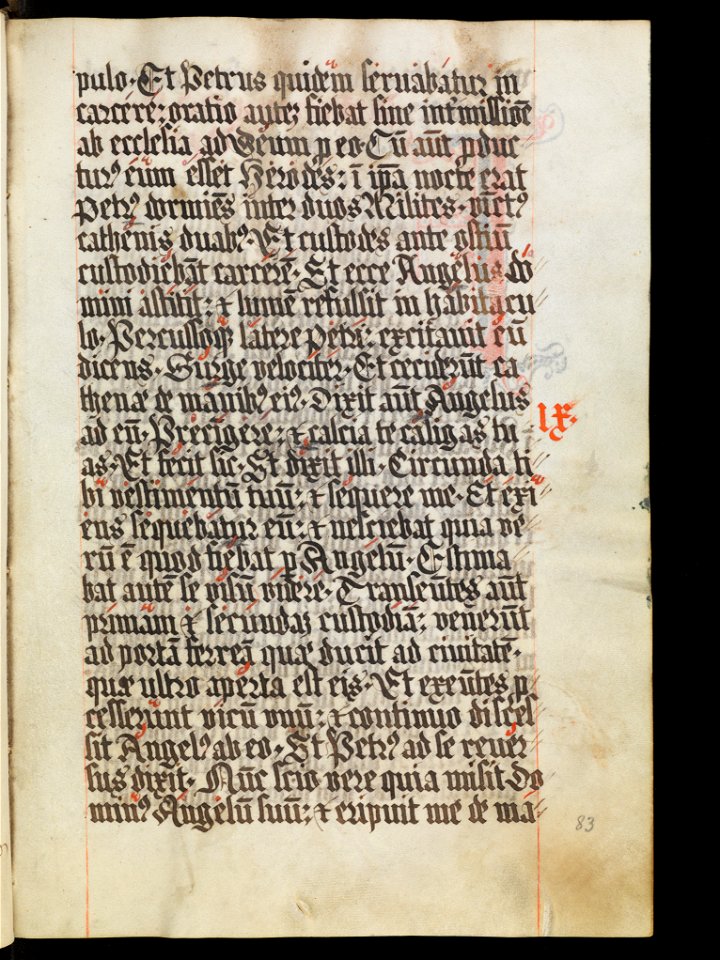 pulo. Et Petrus quidẽm seruabatur in
carcere: oratio autẽ fiebat sine int̃missiõe
ab ecclesia ad Deum p eo. Cũ aũt pduc
turꝰ eum esset Herodes: ĩ ip̃a nocte erat
Petrꝰ dormiẽs inter duos Milites. vĩctꝰ
cathenis duabꝰ. Et custodes ante ostiũ
custodiebãt carcerẽ. Et ecce Angelus do
mini astitit: ⁊ lumẽ refulsit in habitacu
lo. Percussoqꝫ latere Petri: excitauit eũ
dicens. Surge velociter. Et ceciderũt ca
thenæ de manibꝰ eiꝰ. Dixit aũt Angelus
ad eũ. Precĩgere: ⁊ calcia te caligas tu
IX.
as. Et fecit sic. Et dixit illi. Circunda ti
bi vestimentũ tuũ: ⁊ sequere me. Et exi
ens sequebatur eũ: ⁊ nesciebat quia ve
rũ ẽ quod fiebat p Angelũ. Estima
bat autẽ se visũ videre. Transeũtes aũt
primam ⁊ secundaꝫ custodiã: venerũt
ad portã ferreã quæ ducit ad ciuitatẽ.
quæ ultro aperta est eis. Et exeũtes p
cesserunt vicũ vnũ: ⁊ continuo disces
sit Angelꝰ ab eo. Et Petrꝰ ad se reuer
sus dixit. Nũc scio vere quia misit Do
minꝰ Angelũ suũ: ⁊ eripuit me de ma
83